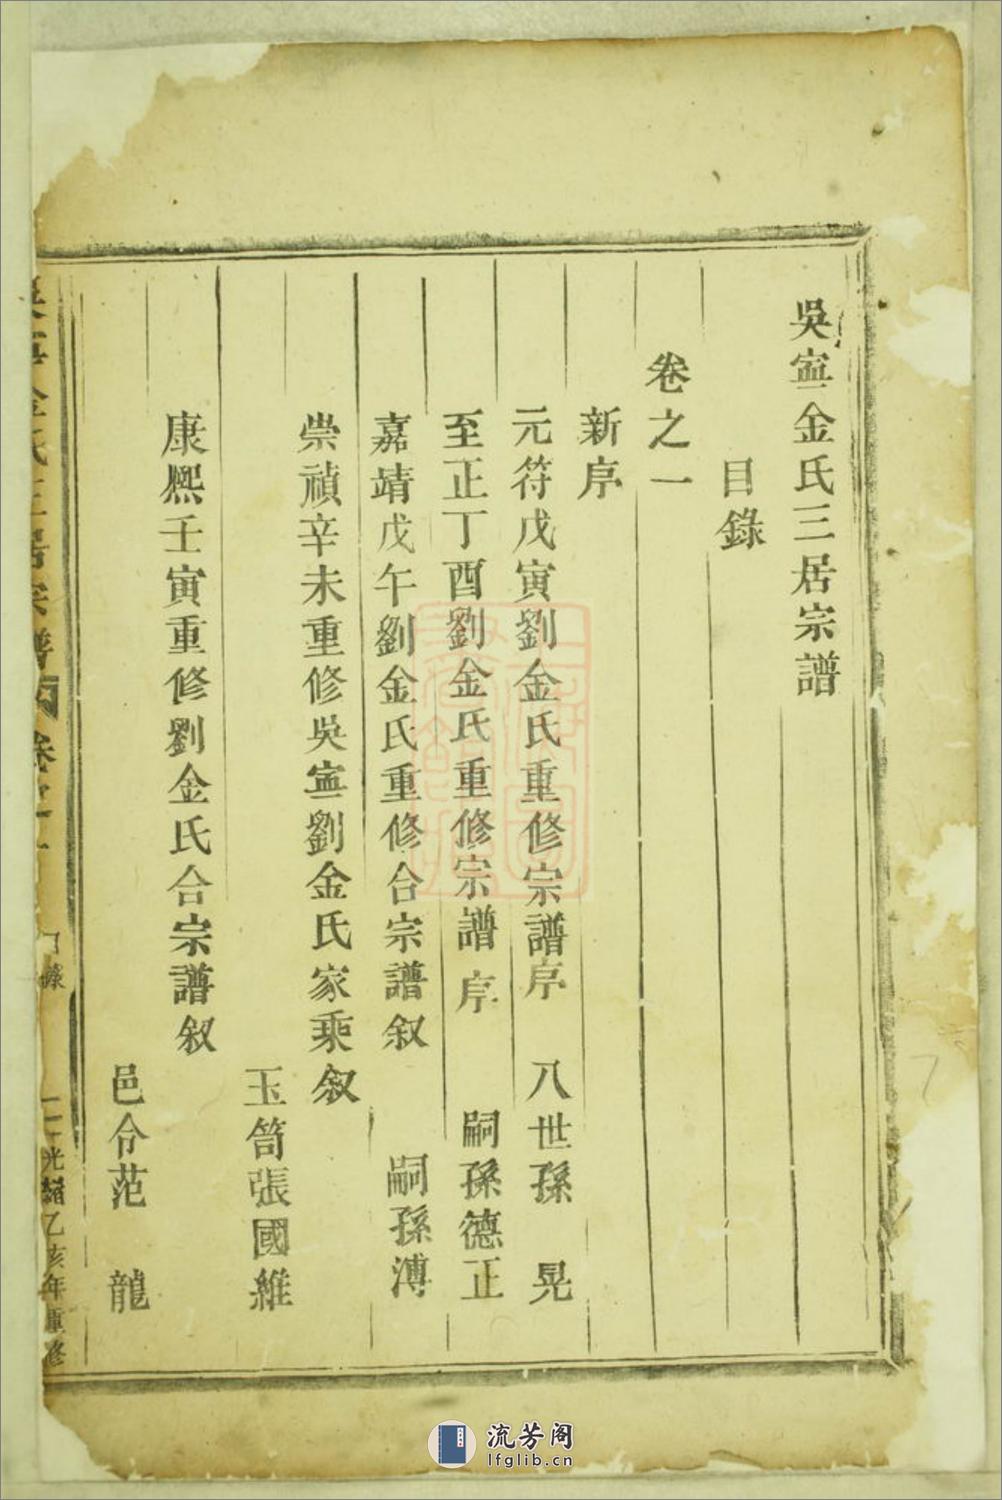 吳寍金氏三居宗譜
目錄
卷之一
新序
元符戊寅劉金氏重修宗譜序 八世孫 晃
至正丁酉劉金氏重修宗譜序 嗣孫德正
嘉靖戊午劉金氏重修合宗譜叙 嗣孫溥
崇禎辛未重修吳寍劉金氏家乘叙
玉笥張國維
康熙壬寅重修劉金氏合宗譜叙
邑令范 龍
金氏三居宗譜 卷之一
光緒乙亥年重修
流芳阁
lfglib.cn